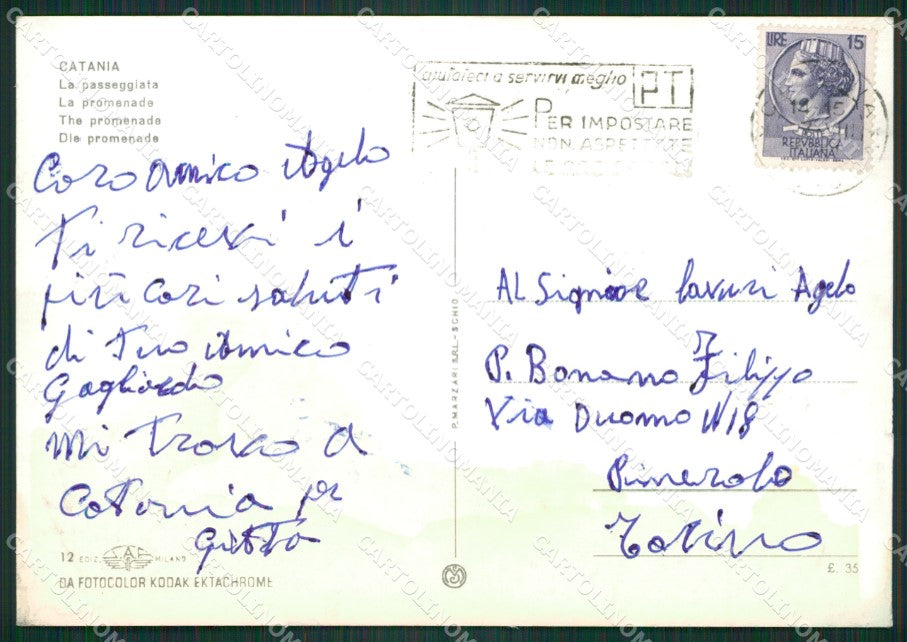 CATANIA
La passeggiata
La promenade
The promenade
Die promenade
Caro Amico Agelo
Ti ricevi i
più cari saluti
di tuo Amico
Gagliardo
Mi trovo a
Catania per
Gitta
12 EDIZ. S.A.F. MILANO
DA FOTOCOLOR KODAK EKTACHROME
P. MARZARI S.R.L. - SCHIO
aiutateci a servirvi meglio
PT
PER IMPOSTARE
NON ASPETTATE
LIRE 15
REPVBBLICA
ITALIANA
Al Signore Agelo
P. Bonanno Filippo
Via Duomo N 18
Pinerolo
Torino
£. 35
CARTOLINOMANIA